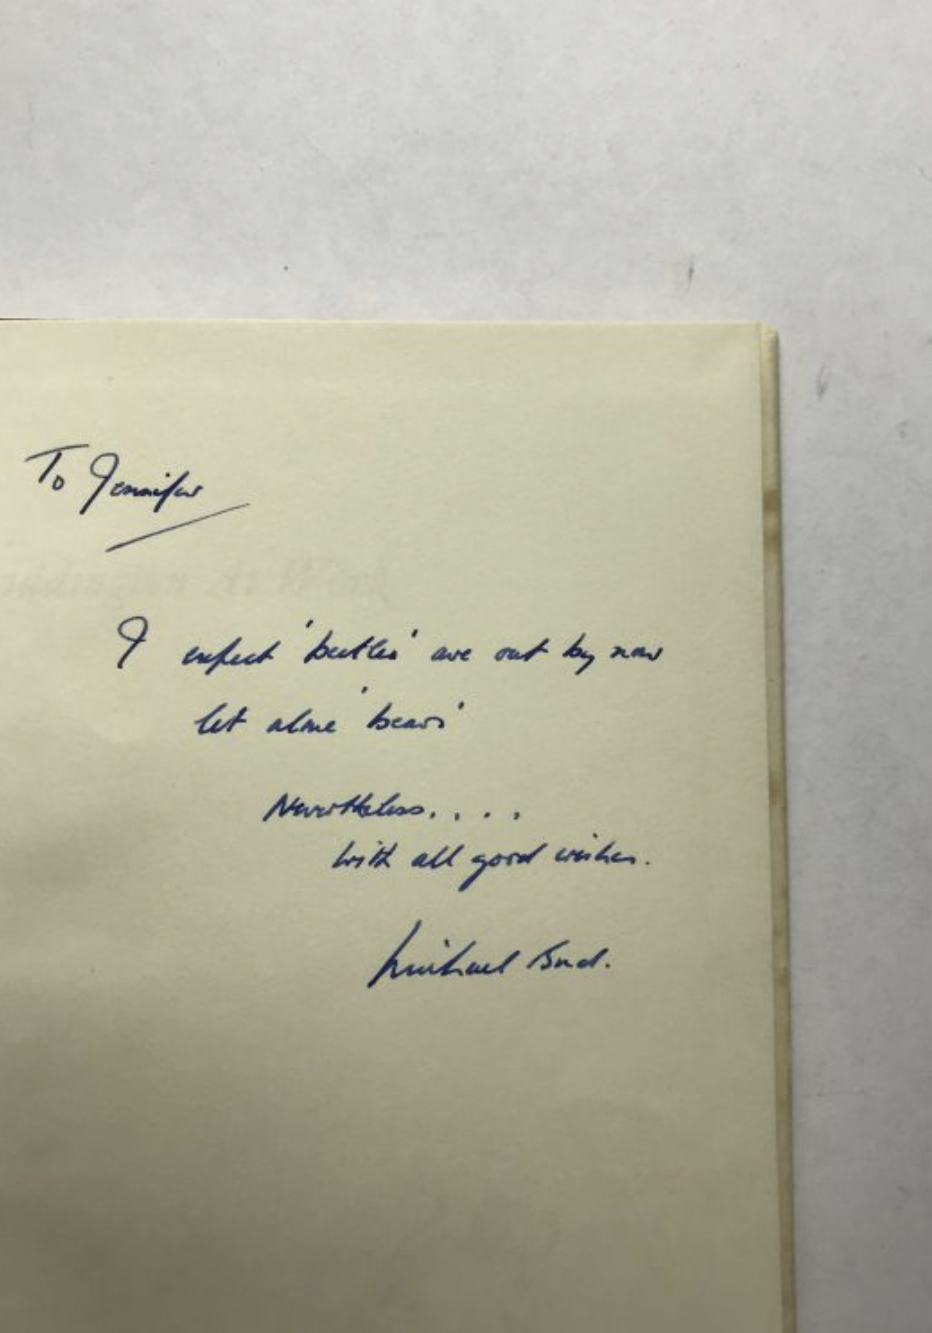 To Jennifer
I expect 'beetles' are out by now
let alone 'bears'
Nevertheless. . . .
With all good wishes.
Michael Bond.